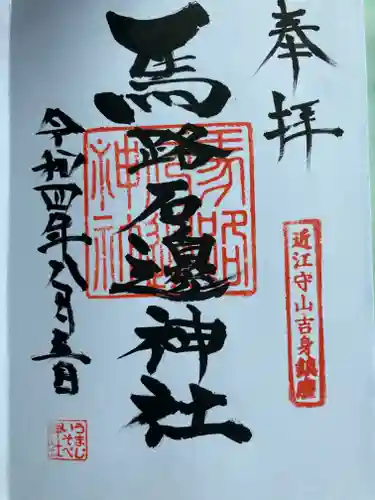 奉拝
近江守山吉身鎮座
馬路石邊神社
馬路石邊神社
令和四年八月三日
うまじいそべ